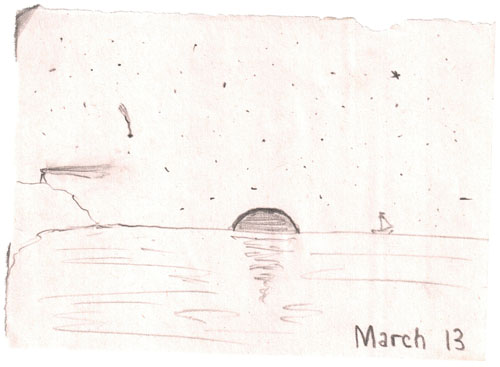 March 13